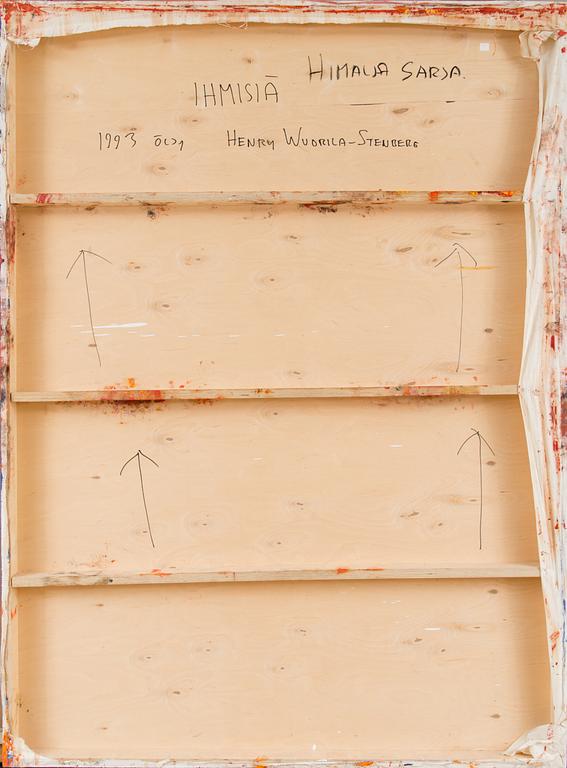 HIMALJA SARJA.
IHMISIÄ
1993 ÖLJY HENRY WUORILA-STENBERG